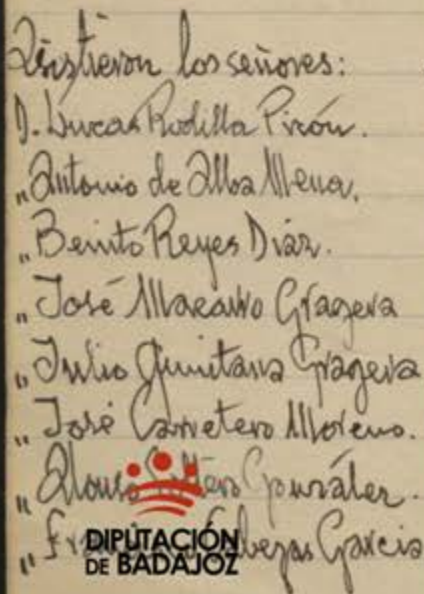 Asistieron los señores:
D. Lucas Rodilla Pirón.
„ Antonio de Alba Mena.
„ Benito Reyes Diáz.
„ José Macarro Gragera
„ Julio Quintana Gragera
„ José Carretero Moreno.
„ Alonso González.
„ Cabezas Garcia
DIPUTACIÓN
DE BADAJOZ